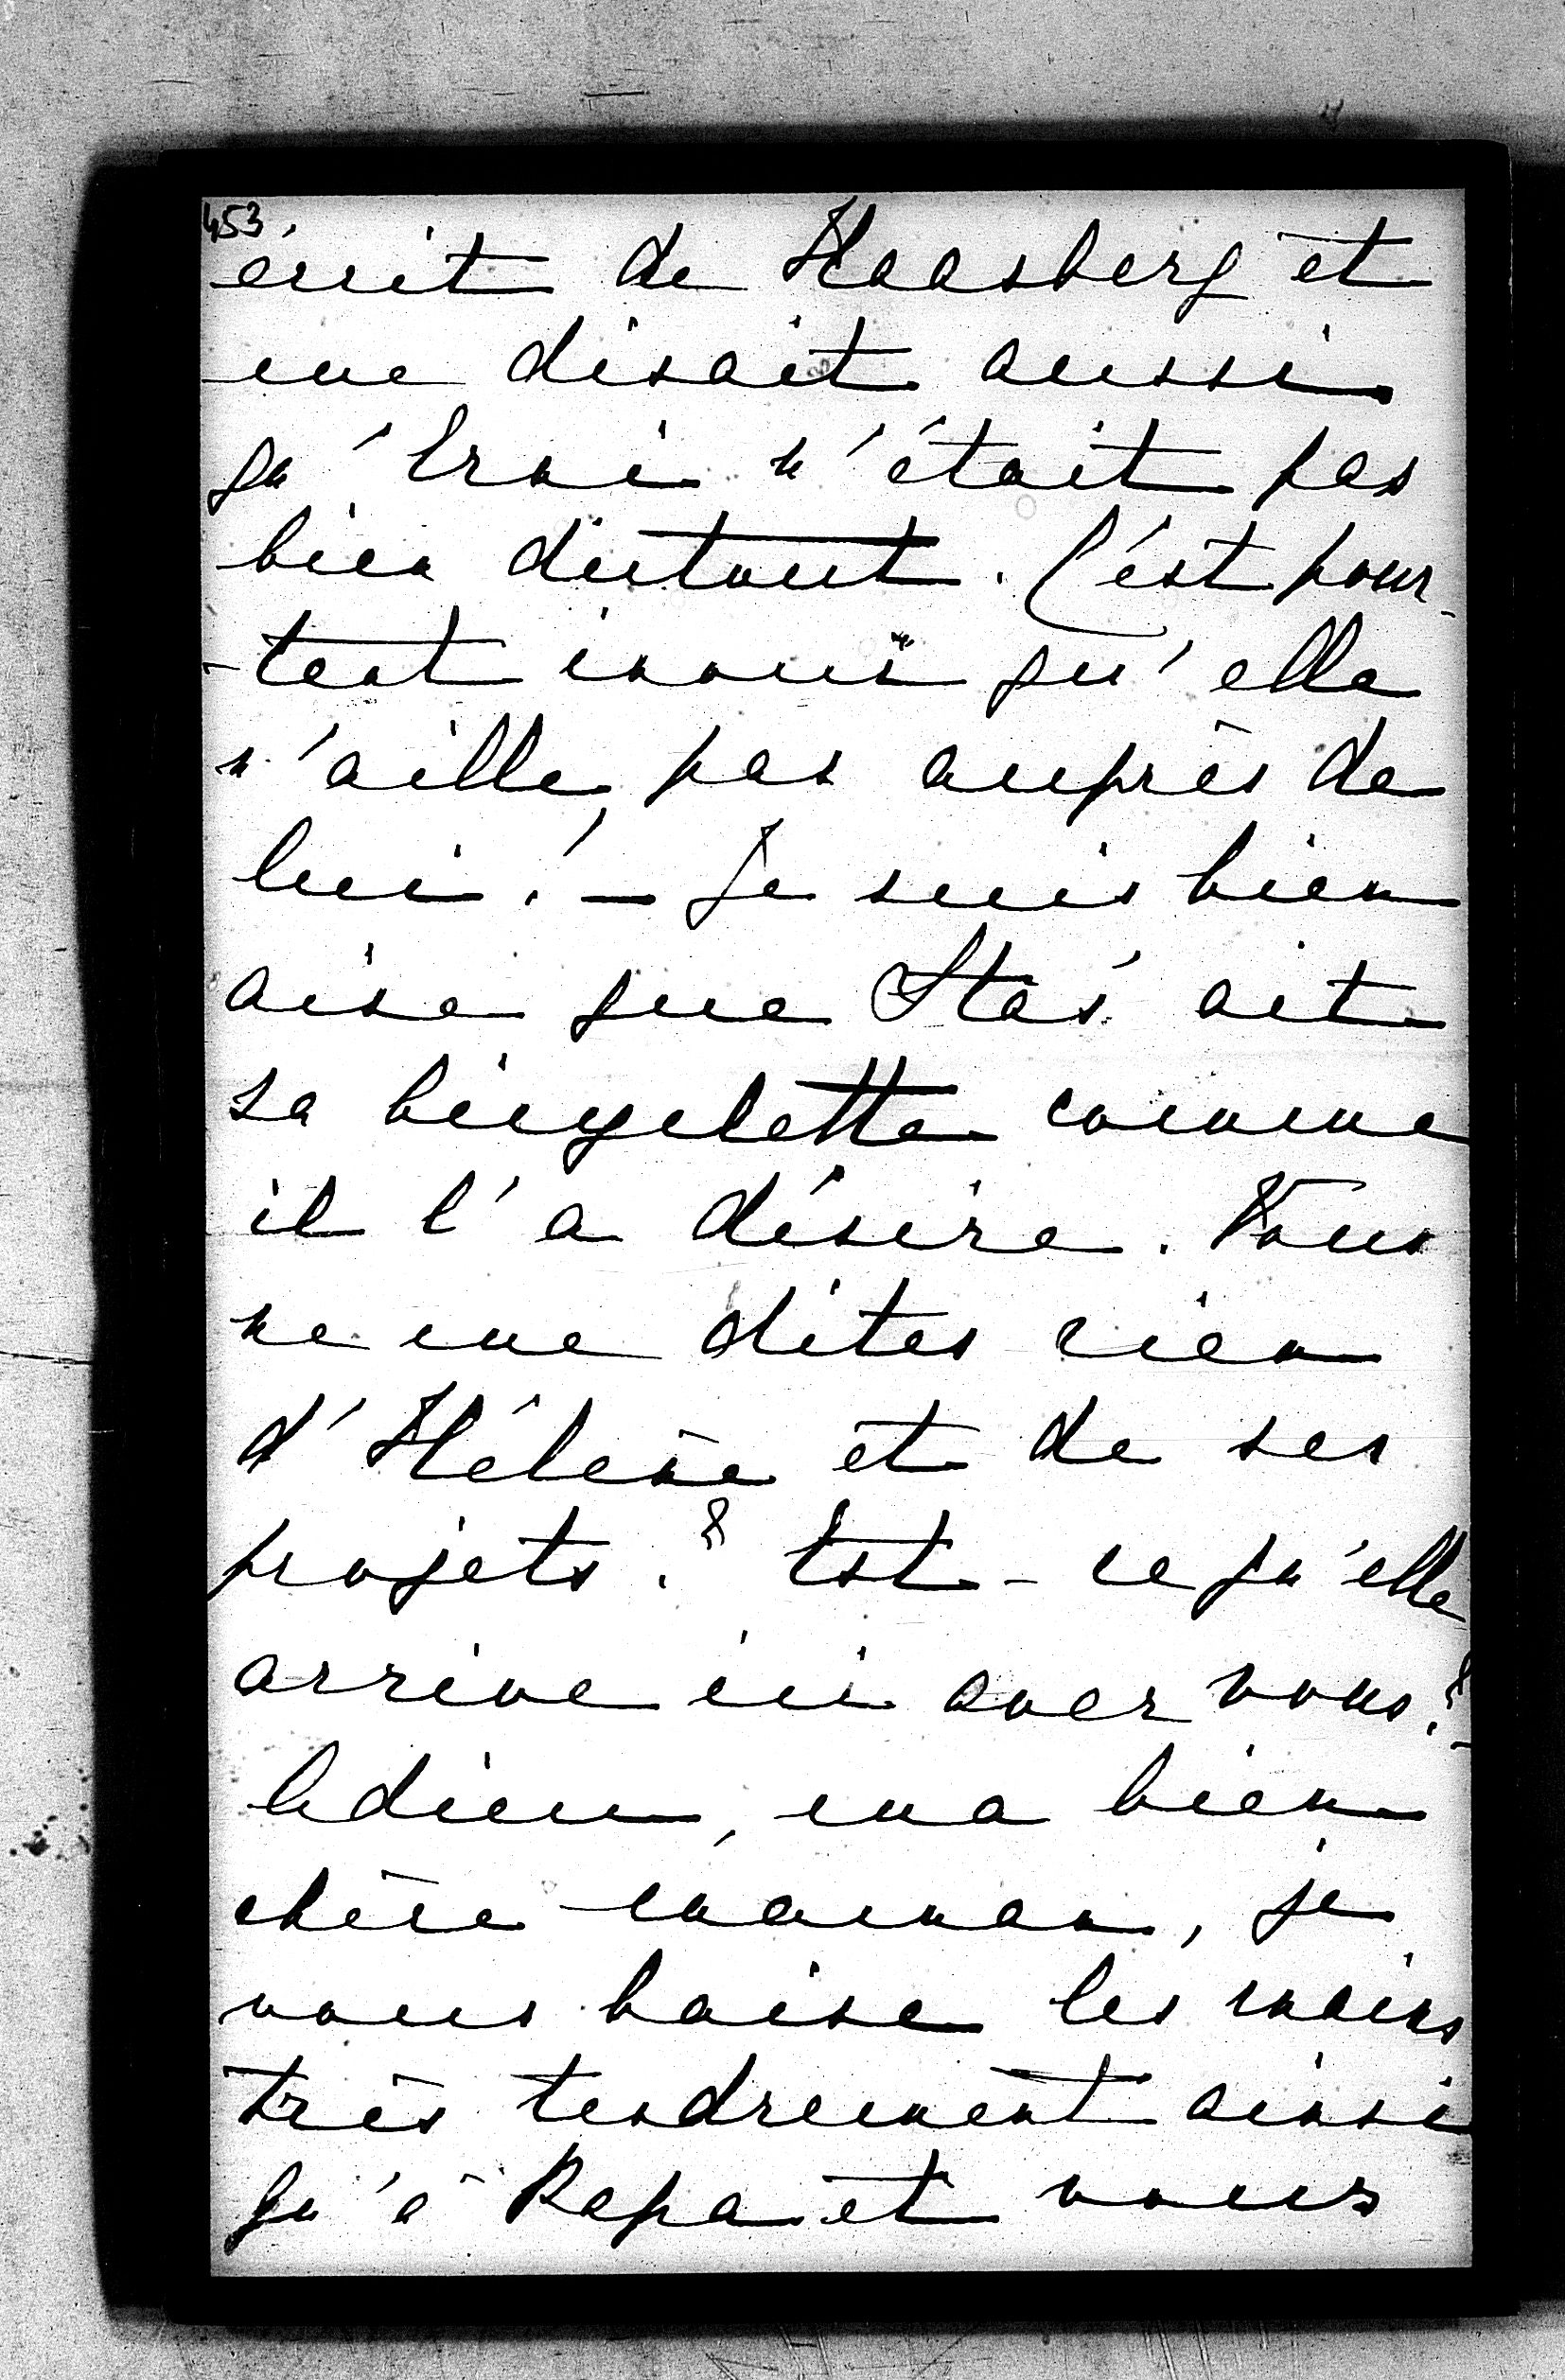 453
écrit de Haasberg et
me disait aussi
qu'Erni n'était pas
bien dutout. C'est pour-
-tant inouï qu'elle
n'aille, pas auprès de
lui! — Je suis bien
aise que Stas' ait
sa bicyclette comme
il l'a désiré. Vous
ne me dites rien
d'Hélène et de ses
projets? Est-ce qu'elle
arrive ici avec vous? -
Adieu, ma bien
chère maman, je
vous baise les mains
très tendrement ainsi
qu'à Papa et vous